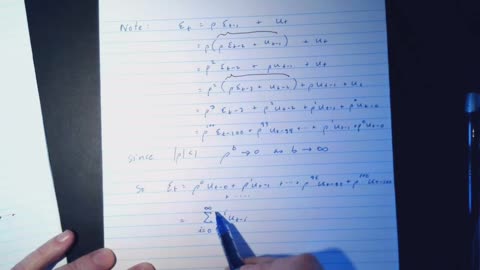 Note: ε_t = ρ ε_{t-1} + u_t
= ρ (ρ ε_{t-2} + u_{t-1}) + u_t
= ρ² ε_{t-2} + ρ u_{t-1} + u_t
= ρ² (ρ ε_{t-3} + u_{t-2}) + ρ u_{t-1} + u_t
= ρ³ ε_{t-3} + ρ² u_{t-2} + ρ¹ u_{t-1} + ρ⁰ u_{t-0}
= ρ¹⁰⁰ ε_{t-100} + ρ⁹⁹ u_{t-99} + ... + ρ¹ u_{t-1} + ρ⁰ u_{t-0}
since |ρ|<1 ρ^b → 0 as b → ∞
So ε_t = ρ⁰ u_{t-0} + ρ¹ u_{t-1} + ... + ρ⁹⁹ u_{t-99} + ρ¹⁰⁰ u_{t-100}
+ .....
= ∑_{i=0}^{∞} u_{t-i}